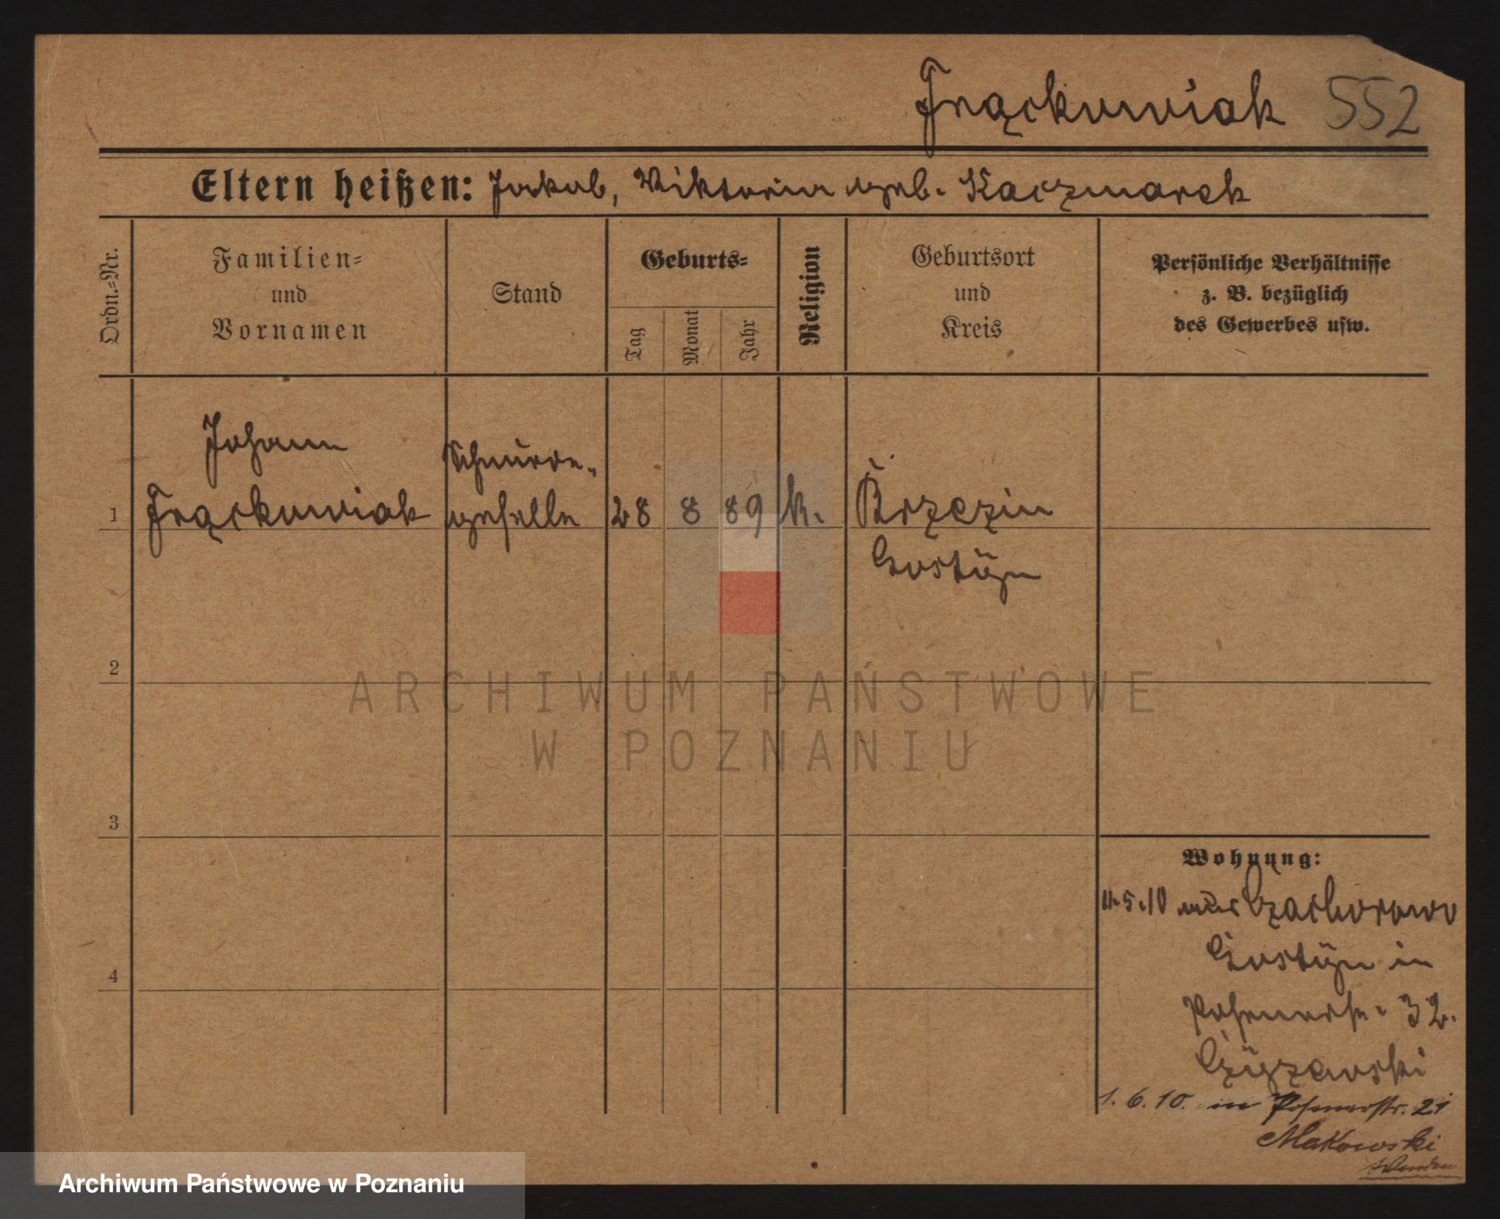 Frąckowiak 552
Eltern heißen: Jakob, Viktoria geb. Kaczmarek
Ordn.=Nr.
Familien=
und
Vornamen
Stand
Geburts=
Tag
Monat
Jahr
Religion
Geburtsort
und
Kreis
Persönliche Verhältnisse
z. B. bezüglich
des Gewerbes usw.
Johann
Frąckowiak
geselle
1 28 8 89 k. Brzezin
Gostÿn
2
3
4
Wohnung:
11.5.10 aus Czachorowo
Gostÿn in
Posenerstr. 32.
1. 6. 10. in Posenerstr. 21
Makowski
ARCHIWUM PAŃSTWOWE
W POZNANIU
Archiwum Państwowe w Poznaniu